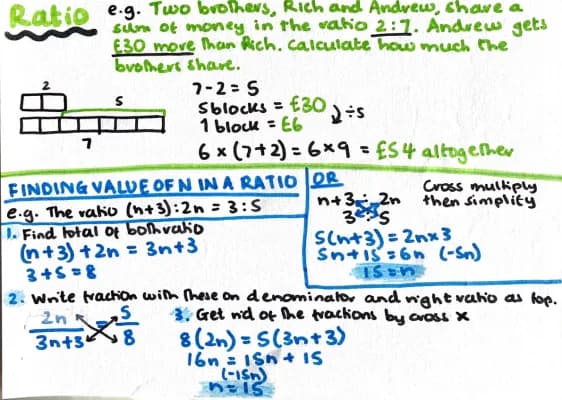 Ratio
e.g. Two brothers, Rich and Andrew, share a
sum of money in the ratio 2:7. Andrew gets
£30 more than Rich. Calculate how much the
brothers share.
2
5
7
7-2 = 5
5blocks = £30
1 block = £6
÷5
6 x (7+2) = 6x9 = £54 altogether
FINDING VALUE OF N IN A RATIO
e.g. The ratio (n+3):2n = 3:5
1. Find total of both ratio
(n+3)+2n = 3n+3
3+5=8
OR
n+3 : 2n
3 : 5
Cross multiply
then simplify
5(n+3) = 2nx3
5n+15 = 6n (-5n)
15=n
2. Write fraction with these on denominator and right ratio as top.
2n = 5
3n+3 8
3. Get rid of the fractions by cross x
8(2n) = 5(3n+3)
16n = 15n + 15
(-15n)
n=15